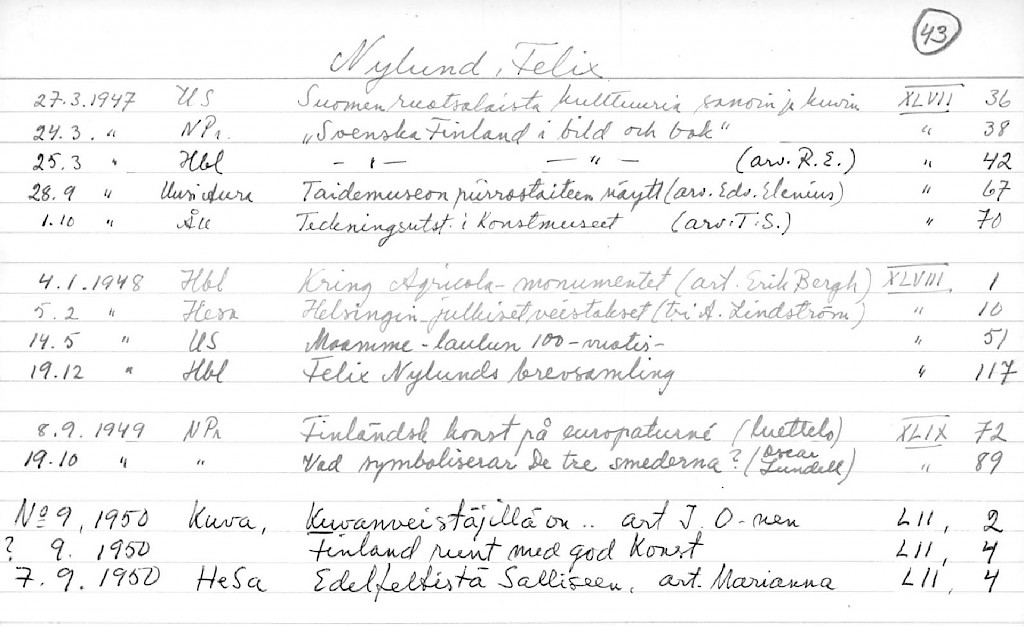 43
Nylund, Felix
27.3.1947 US Suomen ruotsalaista kulttuuria sanoin ja kuvin XLVII 36
24.3. " NPr. "Svenska Finland i bild och bok" " 38
25.3 " Hbl - " - - " - (arv. R.E.) " 42
28.9 " Uusi Aura Taidemuseon piirrostaiteen näytt (arv. Edv. Elenius) " 67
1.10 " ÅU Teckningsutst. i Konstmuseet (arv. T.S.) " 70
4.1.1948 Hbl Kring Agricola-monumentet (art. Erik Bergh) XLVIII, 1
5.2 " Hesa Helsingin julkiset veistokset (tri A. Lindström) " 10
14.5 " US Maamme-laulun 100-vuotis- " 51
19.12 " Hbl Felix Nylunds brevsamling " 117
8.9.1949 NPr Finländsk konst på europaturné (luettelo) XLIX 72
19.10 " " Vad symboliserar De tre smederna? (Oscar Lundell) " 89
No 9, 1950 Kuva, Kuvanveistäjillä on .. art J. O-nen LII, 2
? 9. 1950 Finland runt med god Konst LII, 4
7.9.1950 HeSa Edelfeltistä Salliseen, art. Marianna LII, 4